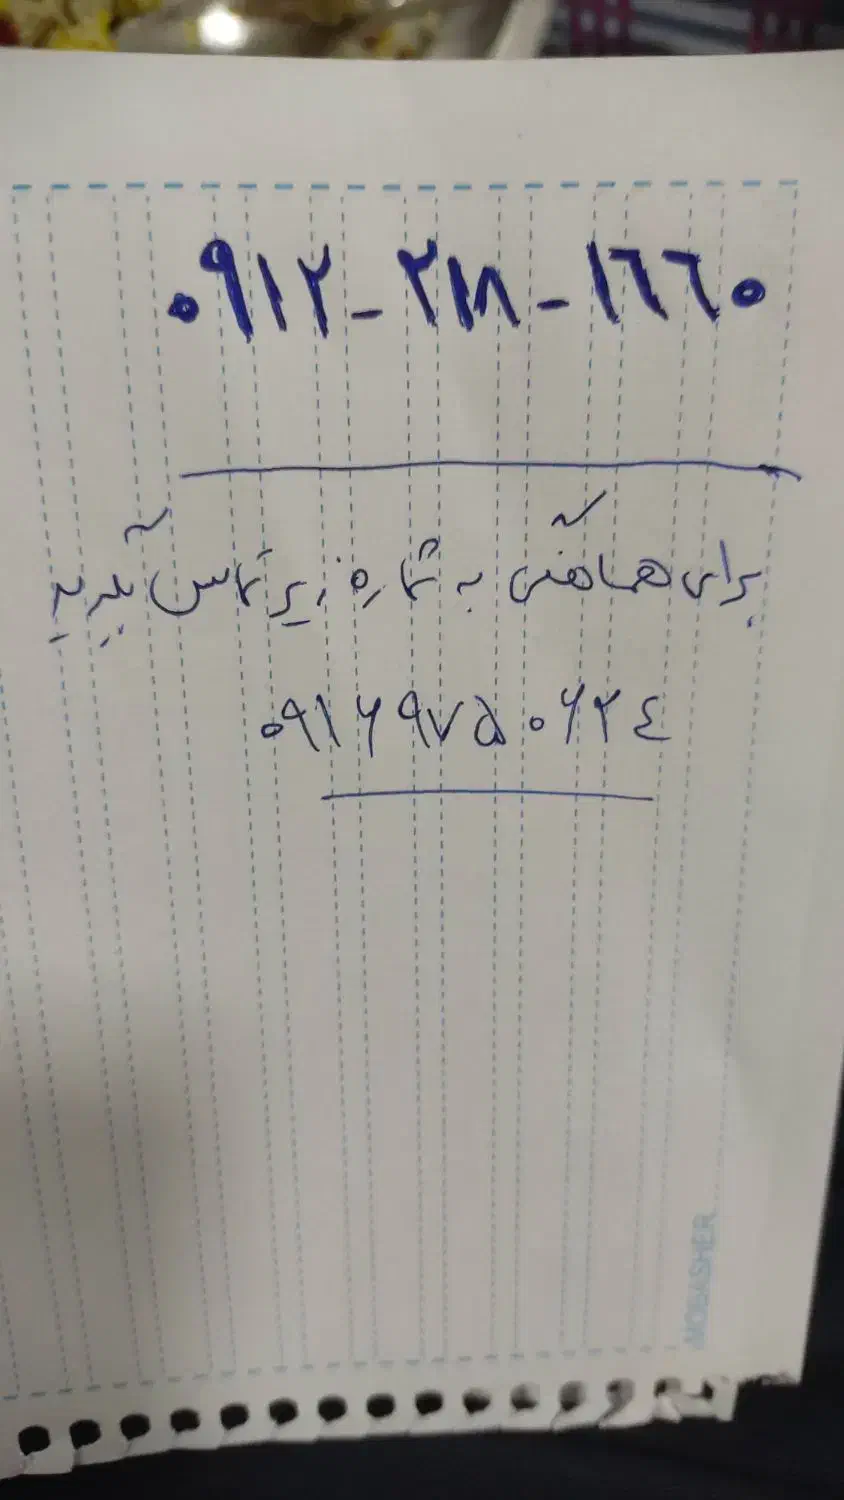 ۰۹۱۲-۲۱۸-۱۶۶۰
برای هماهنگی به شماره زیر تماس بگیرید
۰۹۱۶۹۷۵۰۶۲۴
MOBASHER